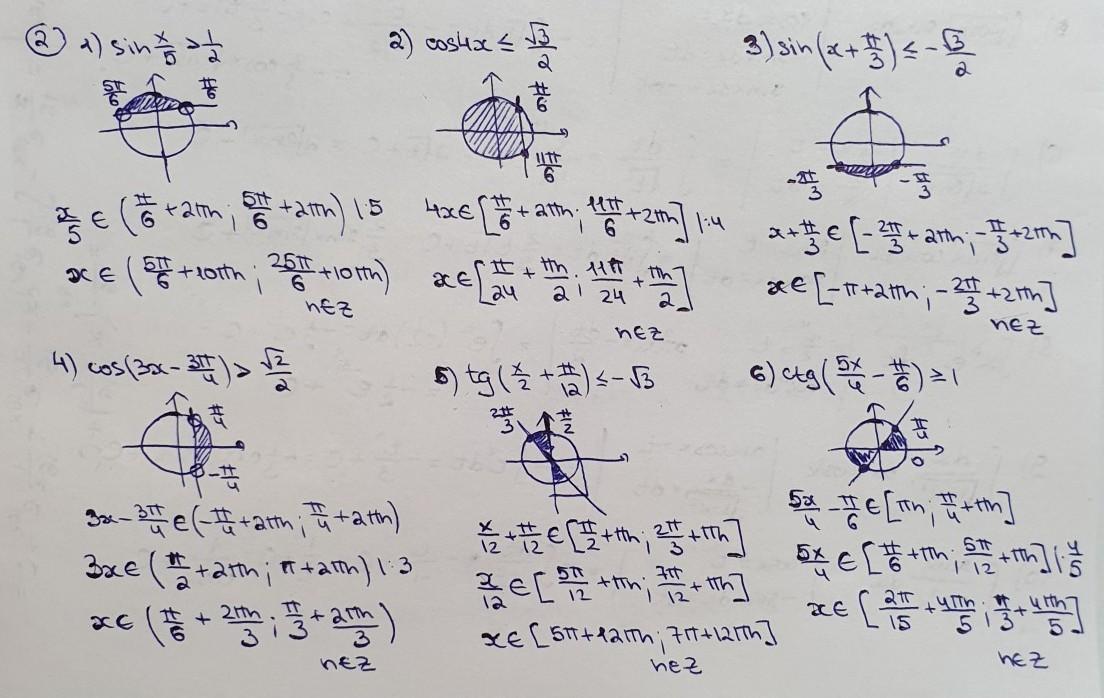 ② 1) sin x/5 > 1/2
5π/6 π/6
x/5 ∈ (π/6 + 2πn; 5π/6 + 2πn) |·5
x ∈ (5π/6 + 10πn; 25π/6 + 10πn)
n∈Z
2) cos4x ≤ √3/2
π/6
11π/6
4x∈[π/6 + 2πn; 11π/6 + 2πn] |:4
x∈[π/24 + πn/2; 11π/24 + πn/2]
n∈Z
3) sin(x + π/3) ≤ -√3/2
-2π/3 -π/3
x + π/3 ∈ [-2π/3 + 2πn; -π/3 + 2πn]
x∈[-π + 2πn; -2π/3 + 2πn]
n∈Z
4) cos(3x - 3π/4) > √2/2
π/4
-π/4
3x - 3π/4 ∈ (-π/4 + 2πn; π/4 + 2πn)
3x∈(π/2 + 2πn; π + 2πn) |:3
x∈(π/6 + 2πn/3; π/3 + 2πn/3)
n∈Z
5) tg(x/2 + π/12) ≤ -√3
2π/3 π/2
x/12 + π/12 ∈ [π/2 + πn; 2π/3 + πn]
x/12 ∈ [5π/12 + πn; 7π/12 + πn]
x∈[5π + 12πn; 7π + 12πn]
n∈Z
6) ctg(5x/4 - π/6) ≥ 1
π/4
0
5x/4 - π/6 ∈ [πn; π/4 + πn]
5x/4 ∈ [π/6 + πn; 5π/12 + πn] |·4/5
x∈[2π/15 + 4πn/5; π/3 + 4πn/5]
n∈Z